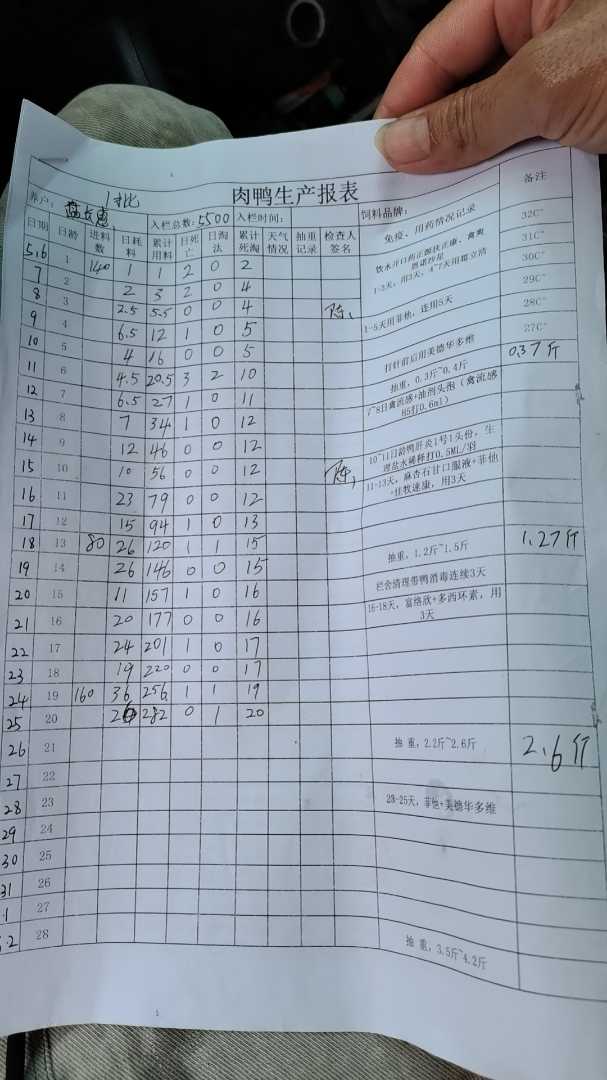 1批
肉鸭生产报表
养户： 入栏总数：5500 入栏时间： 饲料品牌： 备注
日期 日龄 进料数 日耗料 累计用料 日死亡 日淘汰 累计死淘 天气情况 抽重记录 检查人签名 免疫、用药情况记录
5.6 1 140 1 1 2 0 2 32C°
7 2 2 3 2 0 4 1-3天，用3天，4~7天用霜立清 31C°
8 3 2.5 5.5 0 0 4 30C°
9 4 6.5 12 1 0 5 1-5天用菲他，连用5天 29C°
10 5 4 16 0 0 5 28C°
11 6 4.5 20.5 3 2 10 打针前后用美德华多维 27C°
12 7 6.5 27 1 0 11 抽重，0.3斤~0.4斤 0.37斤
13 8 7 34 1 0 12 7~8日禽流感+油剂头孢（禽流感H5打0.6ml）
14 9 12 46 0 0 12
15 10 10 56 0 0 12 10~11日龄鸭肝炎1号1头份，生理盐水稀释打0.5ML/羽
16 11 23 79 0 0 12 11-13天，麻杏石甘口服液+菲他+佳牧速康，用3天
17 12 15 94 1 0 13
18 13 80 26 120 1 1 15
19 14 26 146 0 0 15 抽重，1.2斤~1.5斤 1.27斤
20 15 11 157 1 0 16 栏舍清理带鸭消毒连续3天
21 16 20 177 0 0 16 16-18天，富络欣+多西环素，用3天
22 17 24 201 1 0 17
23 18 19 220 0 0 17
24 19 160 36 256 1 1 19
25 20 26 282 0 1 20
26 21 抽重，2.2斤~2.6斤 2.6斤
27 22
28 23 23-25天，菲他+美德华多维
29 24
30 25
31 26
.1 27
.2 28 抽重，3.5斤~4.2斤
1